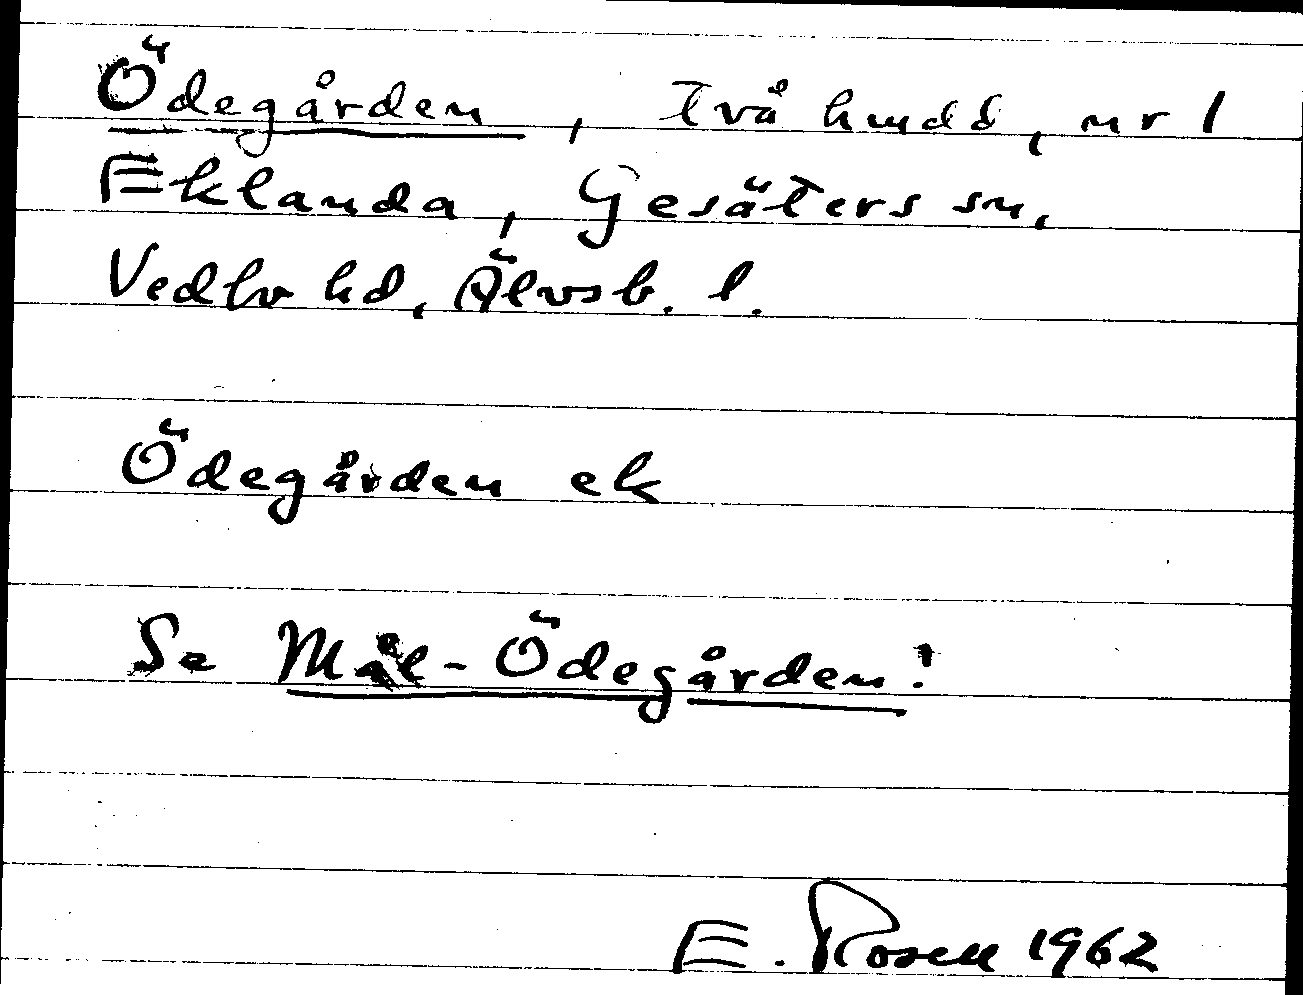 Ödegården, två hmdd, nr 1
Eklanda, Gesäters sn,
Vedbo hd, Älvsb. l.
Ödegården ek
Se Mål-Ödegården!
E. Rosell 1962